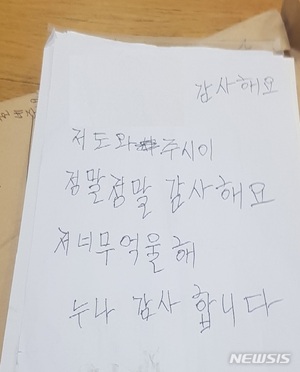 감사해요
저도와주시이
정말정말 감사해요
저너무억울해
누나 감사 합니다
NEWSIS